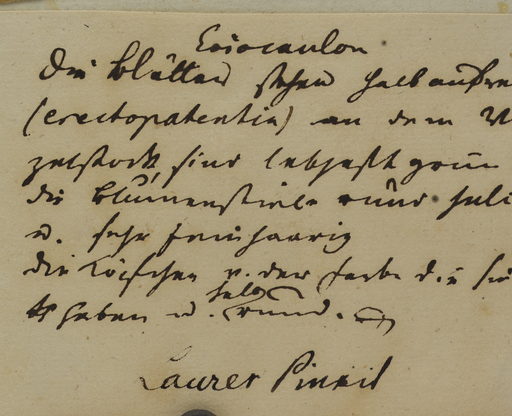 Eriocaulon
die Blätter stehen halb aufre
(erectopatentia) an dem W
zelstock, sind lebhaft grün
die Blumenstiele rund
u. sehr feinhaarig
die Köpfchen v. der Farbe die sie
haben u. halb rund.
Laurer